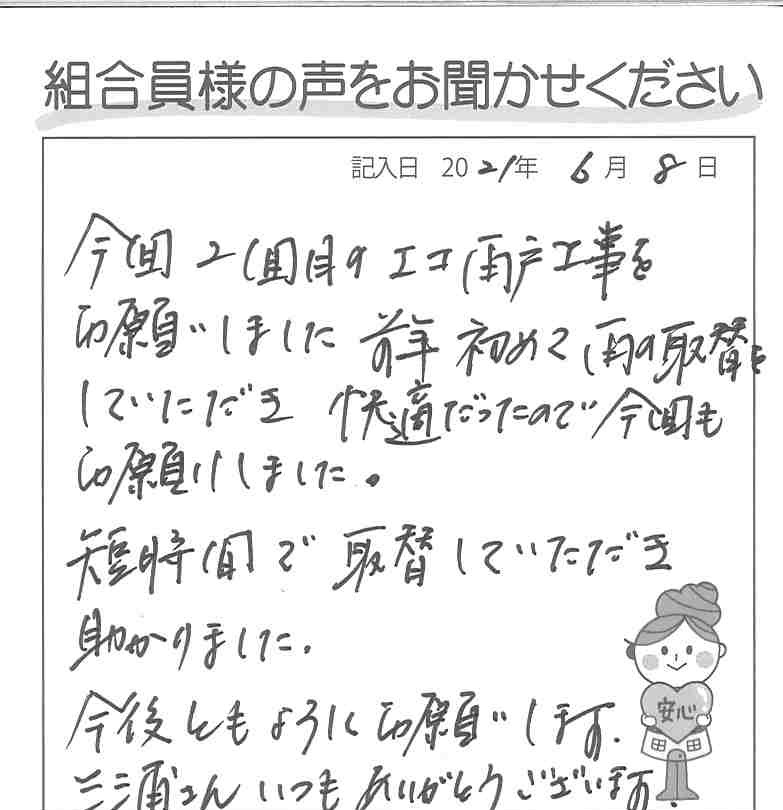 組合員様の声をお聞かせください
記入日 2021年 6月 8日
今回2回目のエコ雨戸工事を
お願いしました 前年初めて雨の取替を
していただき 快適だったので今回も
お願いしました。
短時間で取替していただき
助かりました.
今後ともようにお願いします.
三浦さんいつもありがとうございます
安心